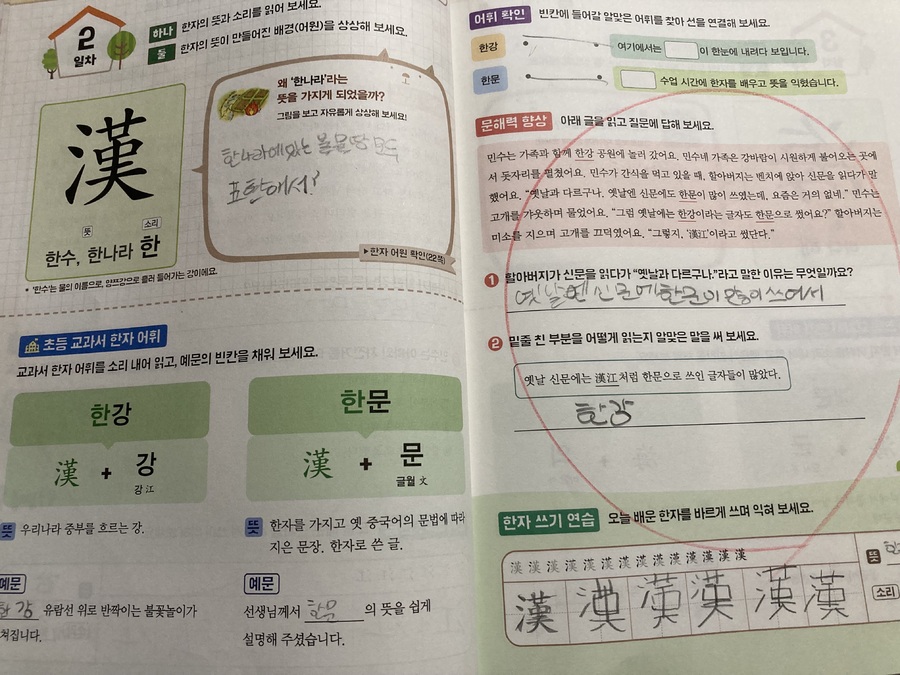 2
일차
하나 한자의 뜻과 소리를 읽어 보세요.
둘 한자의 뜻이 만들어진 배경(어원)을 상상해 보세요.
漢
뜻 소리
한수, 한나라 한
• '한수'는 물의 이름으로, 양쯔강으로 흘러 들어가는 강이에요.
왜 '한나라'라는
뜻을 가지게 되었을까?
그림을 보고 자유롭게 상상해 보세요!
한나라에 있는
표한해서!
▶한자 어원 확인(22쪽)
초등 교과서 한자 어휘
교과서 한자 어휘를 소리 내어 읽고, 예문의 빈칸을 채워 보세요.
한강
漢 + 강
강 江
뜻 우리나라 중부를 흐르는 강.
예문
한강 유람선 위로 반짝이는 불꽃놀이가
쳐집니다.
한문
漢 + 문
글월 文
뜻 한자를 가지고 옛 중국어의 문법에 따라
지은 문장. 한자로 쓴 글.
예문
선생님께서 한문 의 뜻을 쉽게
설명해 주셨습니다.
어휘 확인 빈칸에 들어갈 알맞은 어휘를 찾아 선을 연결해 보세요.
한강 여기에서는 이 한눈에 내려다 보입니다.
한문 수업 시간에 한자를 배우고 뜻을 익혔습니다.
문해력 향상 아래 글을 읽고 질문에 답해 보세요.
민수는 가족과 함께 한강 공원에 놀러 갔어요. 민수네 가족은 강바람이 시원하게 불어오는 곳에
서 돗자리를 펼쳤어요. 민수가 간식을 먹고 있을 때, 할아버지는 벤치에 앉아 신문을 읽다가 말
했어요. "옛날과 다르구나, 옛날엔 신문에도 한문이 많이 쓰였는데, 요즘은 거의 없네." 민수는
고개를 갸웃하며 물었어요. "그럼 옛날에는 한강이라는 글자도 한문으로 썼어요?" 할아버지는
미소를 지으며 고개를 끄덕였어요. "그렇지, '漢江'이라고 썼단다."
1 할아버지가 신문을 읽다가 "옛날과 다르구나."라고 말한 이유는 무엇일까요?
옛날엔 신문에 한문이 많이 쓰여서
2 밑줄 친 부분을 어떻게 읽는지 알맞은 말을 써 보세요.
옛날 신문에는 漢江처럼 한문으로 쓰인 글자들이 많았다.
한강
한자 쓰기 연습 오늘 배운 한자를 바르게 쓰며 익혀 보세요.
漢 漢 漢 漢 漢 漢 漢 漢 漢 漢 漢 漢 漢 漢
漢 漢 漢 漢 漢 漢
뜻
소리